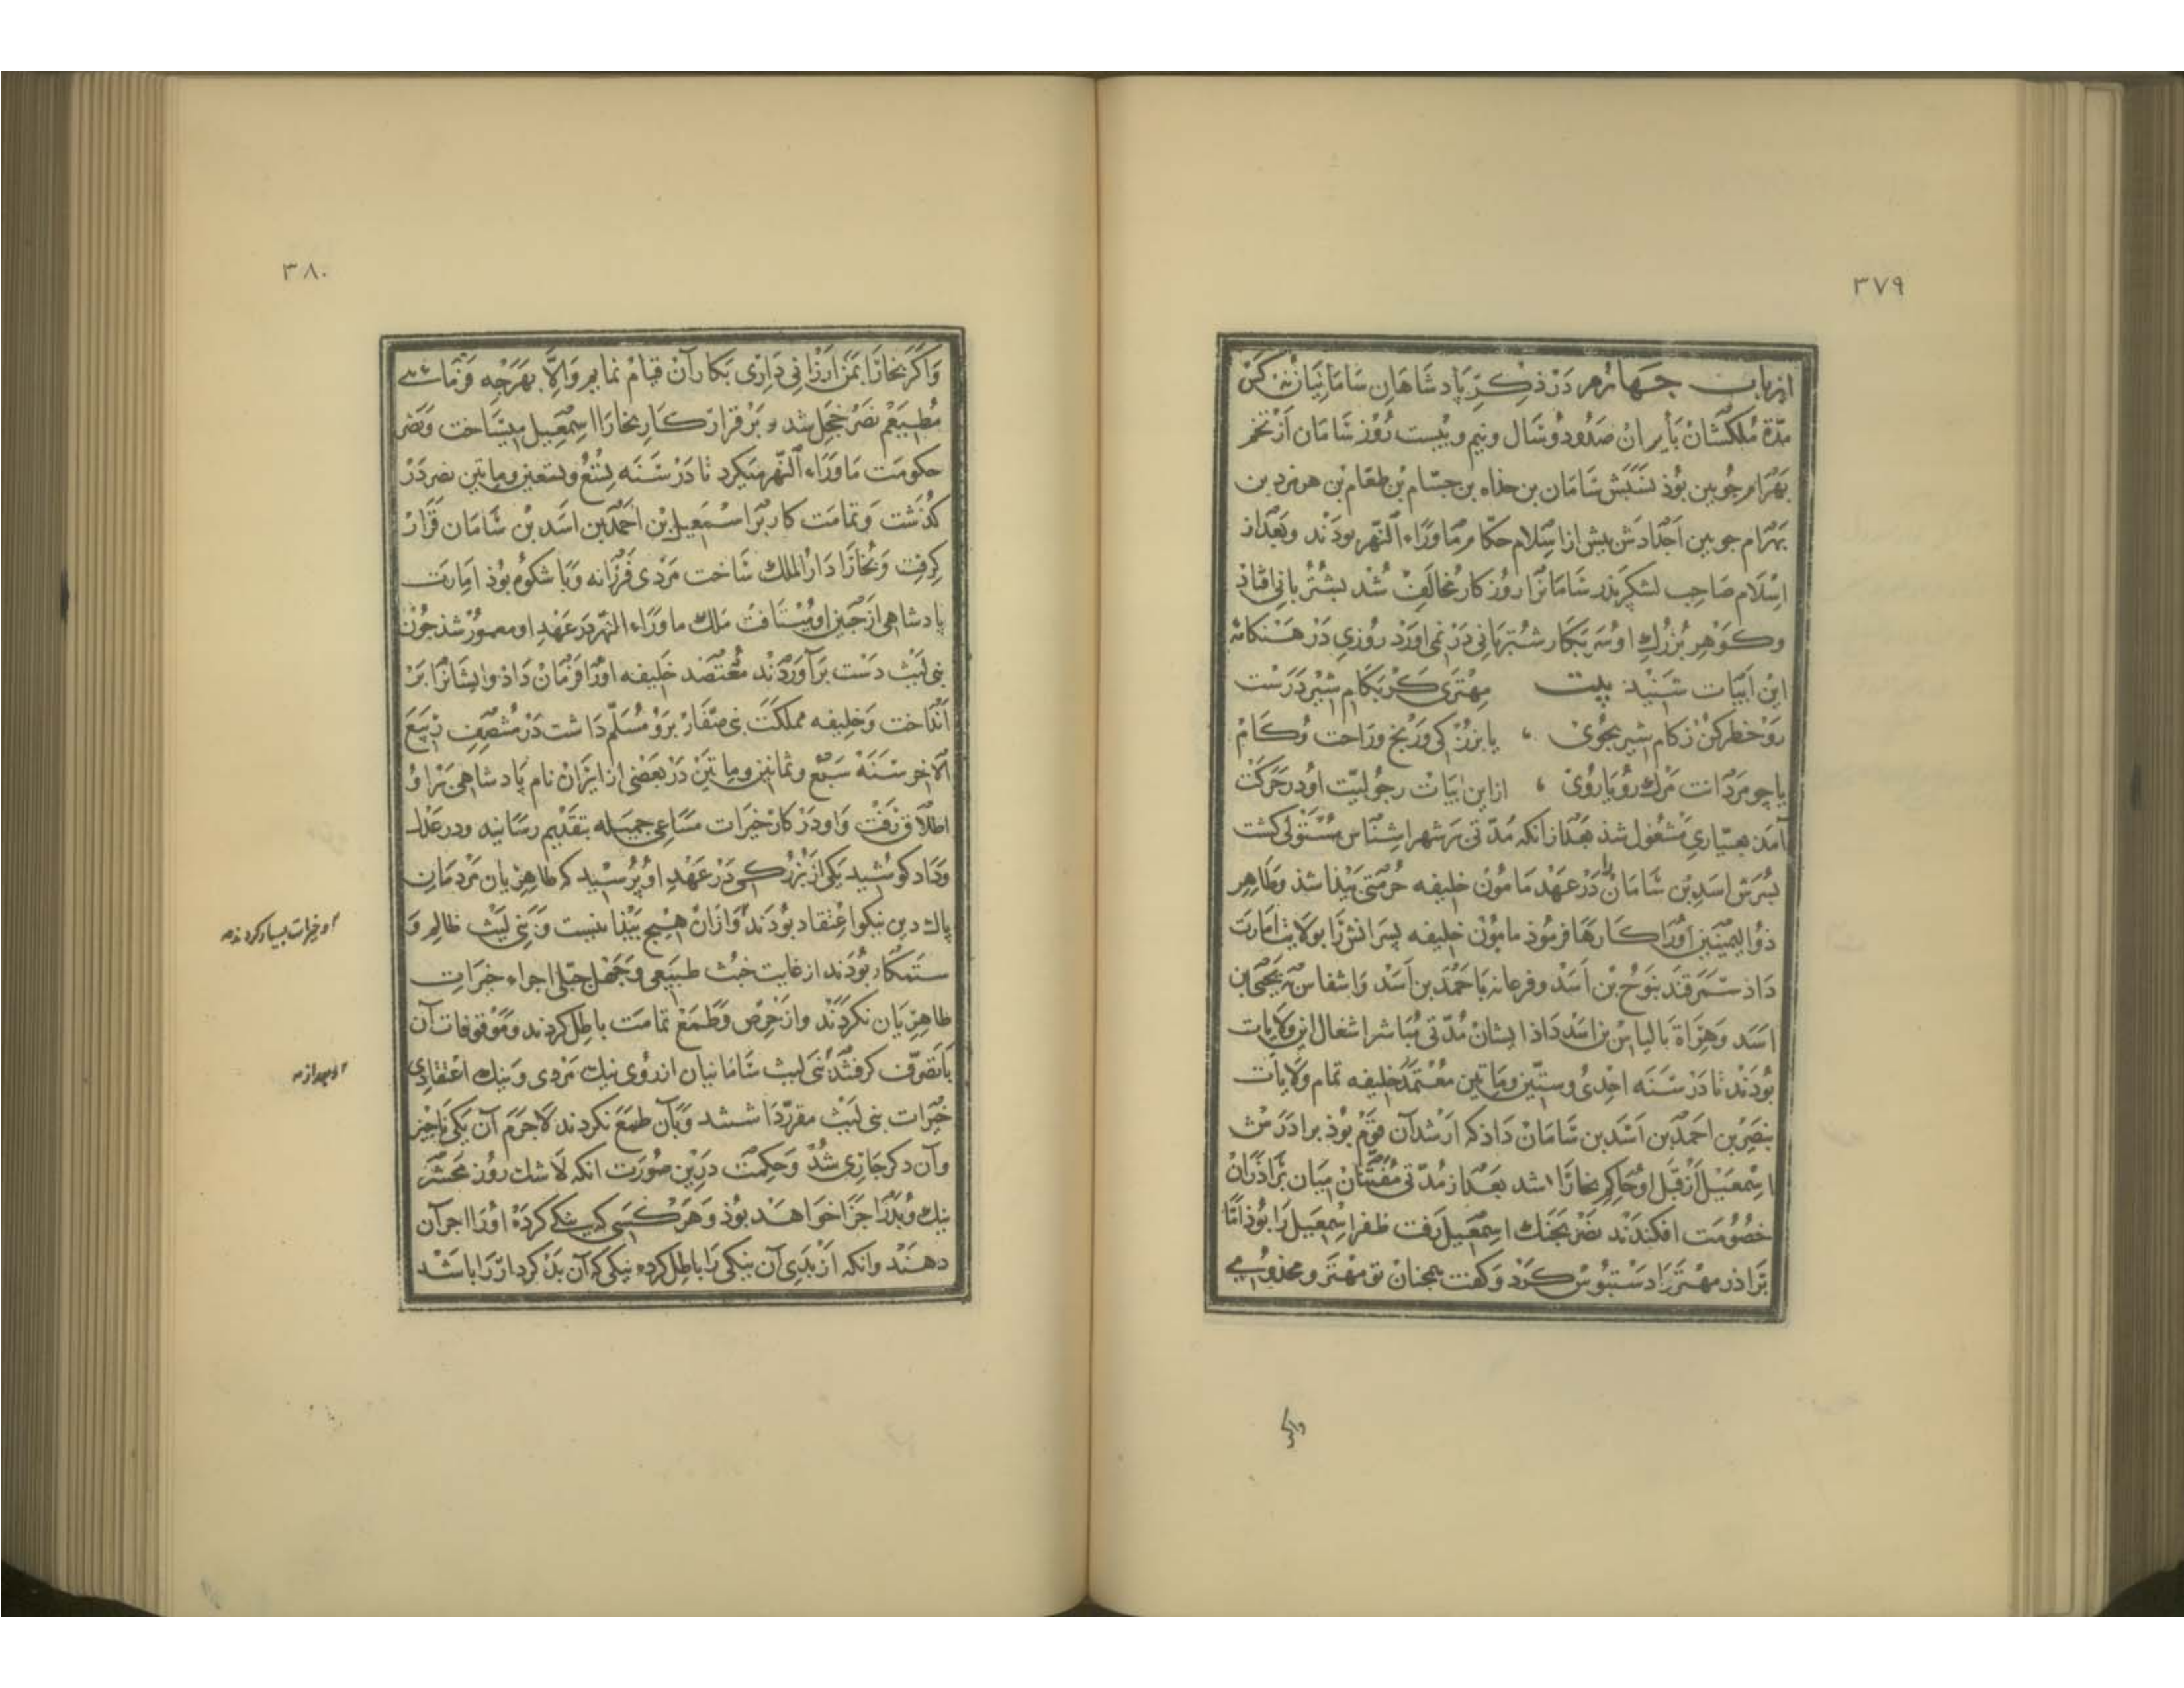 ۳۷۹
از باب چهارم در ذکر پادشاهان سامانیان نه کس
مدّة ملکشان بأیران صدودوسال ونیم وبیست روز سامان از تخم
بهرام جوبین بوذ نسبش سامان بن خذاه بن جسّام بن طغام بن هرمزد بن
بهرام جوبین اجدادش بیش از اسلام حکّام ماوراء النّهر بودند وبعداز
اسلام صاحب لشکر بذر سامانرا روزکار مخالف شد بشتربانی افتاذ
وکوهر بزرک او سر بکار شتربانی در نمی اورد روزی در هنکامۀ
این ابیات شنید بیت مهتری کر بکام شیر درست
رو خطر کن ز کام شیر بجوی یا بزرکی وناز ورحت وکام
یا چو مردانت مرک رویاروی ازاین ابیات رجولیّت او در حرکت
آمد بعیّاری مشغول شذ بعدازانکه مدّتی بر شهر اشناس مستولی کشت
بسرش اسدبن سامان را در عهد مامون خلیفه حرمتی بیذا شذ وطاهر
ذوالیمینین اورا کارها فرموذ مامون خلیفه بسرانش را بولایت امارت
داذ سمرقند بنوح بن اسد وفرغانه باحمدبن اسد واشناس بیحیی بن
اسد وهراة بالیاس بن اسد داذ ایشان مدّتی مباشر اشغال این ولایات
بودند تا در سنه احدی وستّین وماتین معتمد خلیفه تمام ولایات
بنصربن احمدبن اسدبن سامان داذ که ارشد آن قوم بوذ برادرش
اسمعیل از قبل او حاکم بخارا شد بعداز مدّتی مفتّنان میان براذران
خصومت افکندند نصر بجنک اسمعیل رفت ظفر اسمعیل را بوذ امّا
براذر مهتر را دستبوس کرد وکفت همچنان تو مهتر ومخدومی
واکر
۳۸۰
واکر بخارا بمن ارزانی داری بکار آن قیام نمایم والّا بهرچه فرمائی
مطیعم نصر خجل شد و بر قرار کار بخارا اسمعیل میساخت ونصر
حکومت ماوراء النّهر میکرد تا در سنه تسع وسبعین وماتین نصر در
کذشت وتمامت کار بر اسمعیل بن احمدبن اسدبن سامان قرار
کرفت وبخارا دار الملک ساخت مردی فرزانه وبا شکوه بوذ امارت
پادشاهی از جبین او میتافت ملک ماوراء النّهر در عهد او معمور شذ چون
بنی لیث دست برآوردند معتضد خلیفه اورا فرمان داذ وایشانرا بر
انداخت وخلیفه مملکت بنی صفّار برو مسلّم داشت در منتصف ربیع
الآخر سنه سبع وثمانین وماتین در بعضی از ایران نام پادشاهی بر او
اطلاق رفت واو در کار خیرات مساعی جمیله بتقدیم رسانید ودر عدل
وداد کوشید یکی از بزرکی در عهد او پرسید که طاهریان مردمان
پاک دین نیکو اعتقاد بودند وازان هیچ بیذا نیست وبنی لیث ظالم و
ستمکار بودند از غایت خبث طبیعی وجهل جبلّی اجراء خیرات
طاهریان نکردند واز حرص وطمع تمامت باطل کردند وموقوفات آن
باتصرّف کرفتند بنی لیث سامانیان از روی نیک مردی ونیک اعتقادی
خیرات بنی لیث مقرّر داشتند وبآن طمع نکردند لاجرم آن یکی ناچیز
وآن دکر جاری شد وحکمت درین صورت انکه لاشک روز محشر
نیک وبدرا جزا خواهد بوذ وهر کسی که نیکی کرده اورا اجر آن
دهند وانکه از بدی آن نیکی را باطل کرده نیکی که آن بدکردار را باشد
او خیرات بسیار کردند